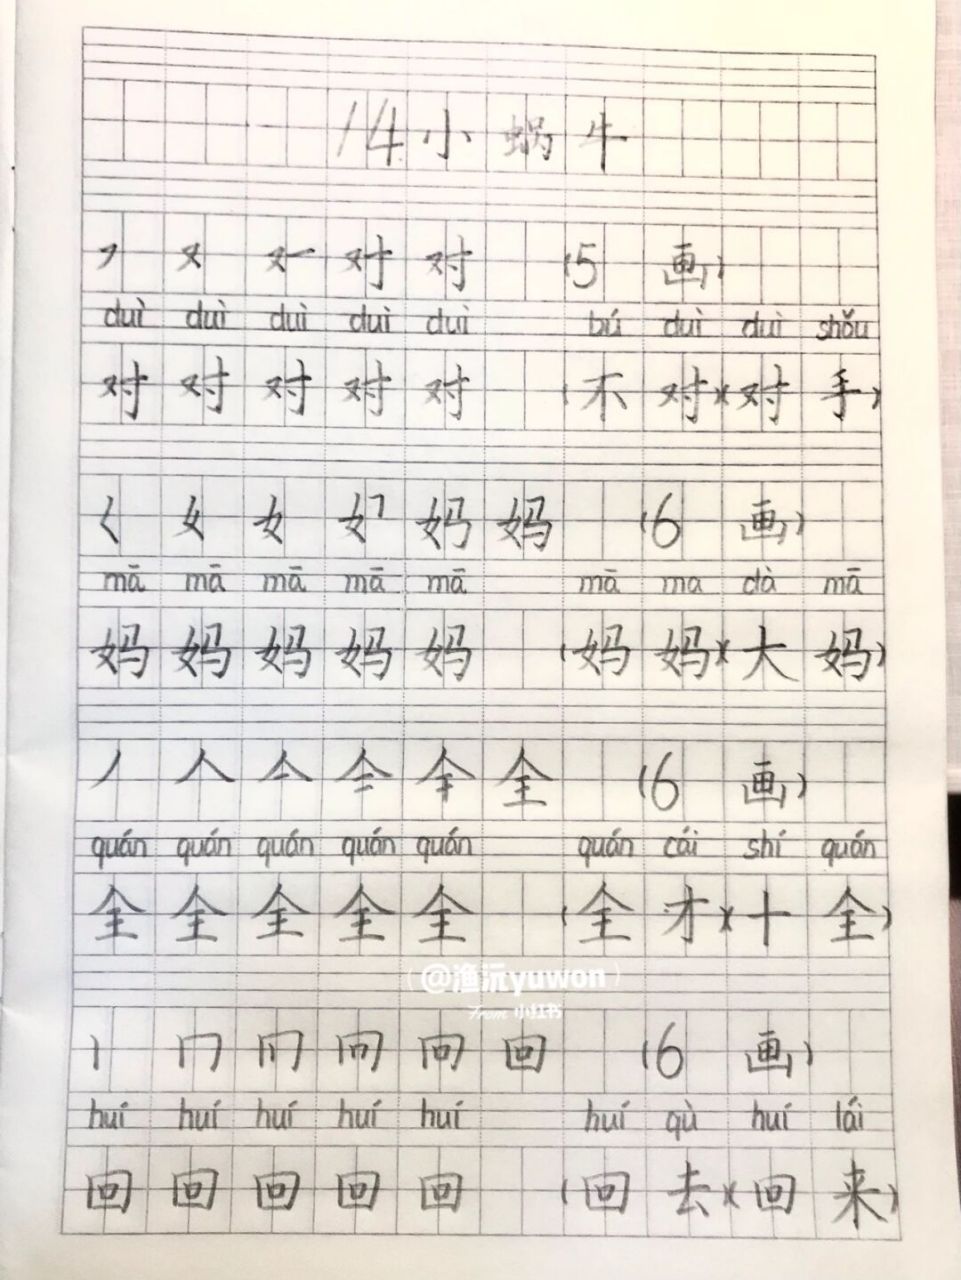 14小蜗牛
㇇ 又 对 对 (5画)
duì duì duì duì duì bú duì duì shǒu
对 对 对 对 对 (不对)(对手)
𡿨 女 女 妈 妈 (6画)
mā mā mā mā mā mā ma dà mā
妈 妈 妈 妈 妈 (妈妈)(大妈)
丿 人 亼 仝 全 (6画)
quán quán quán quán quán quán cái shí quán
全 全 全 全 全 (全才)(十全)
(@渔沅yuwon)
From 小红书
丨 冂 回 回 (6画)
huí huí huí huí huí huí qù huí lái
回 回 回 回 回 (回去)(回来)